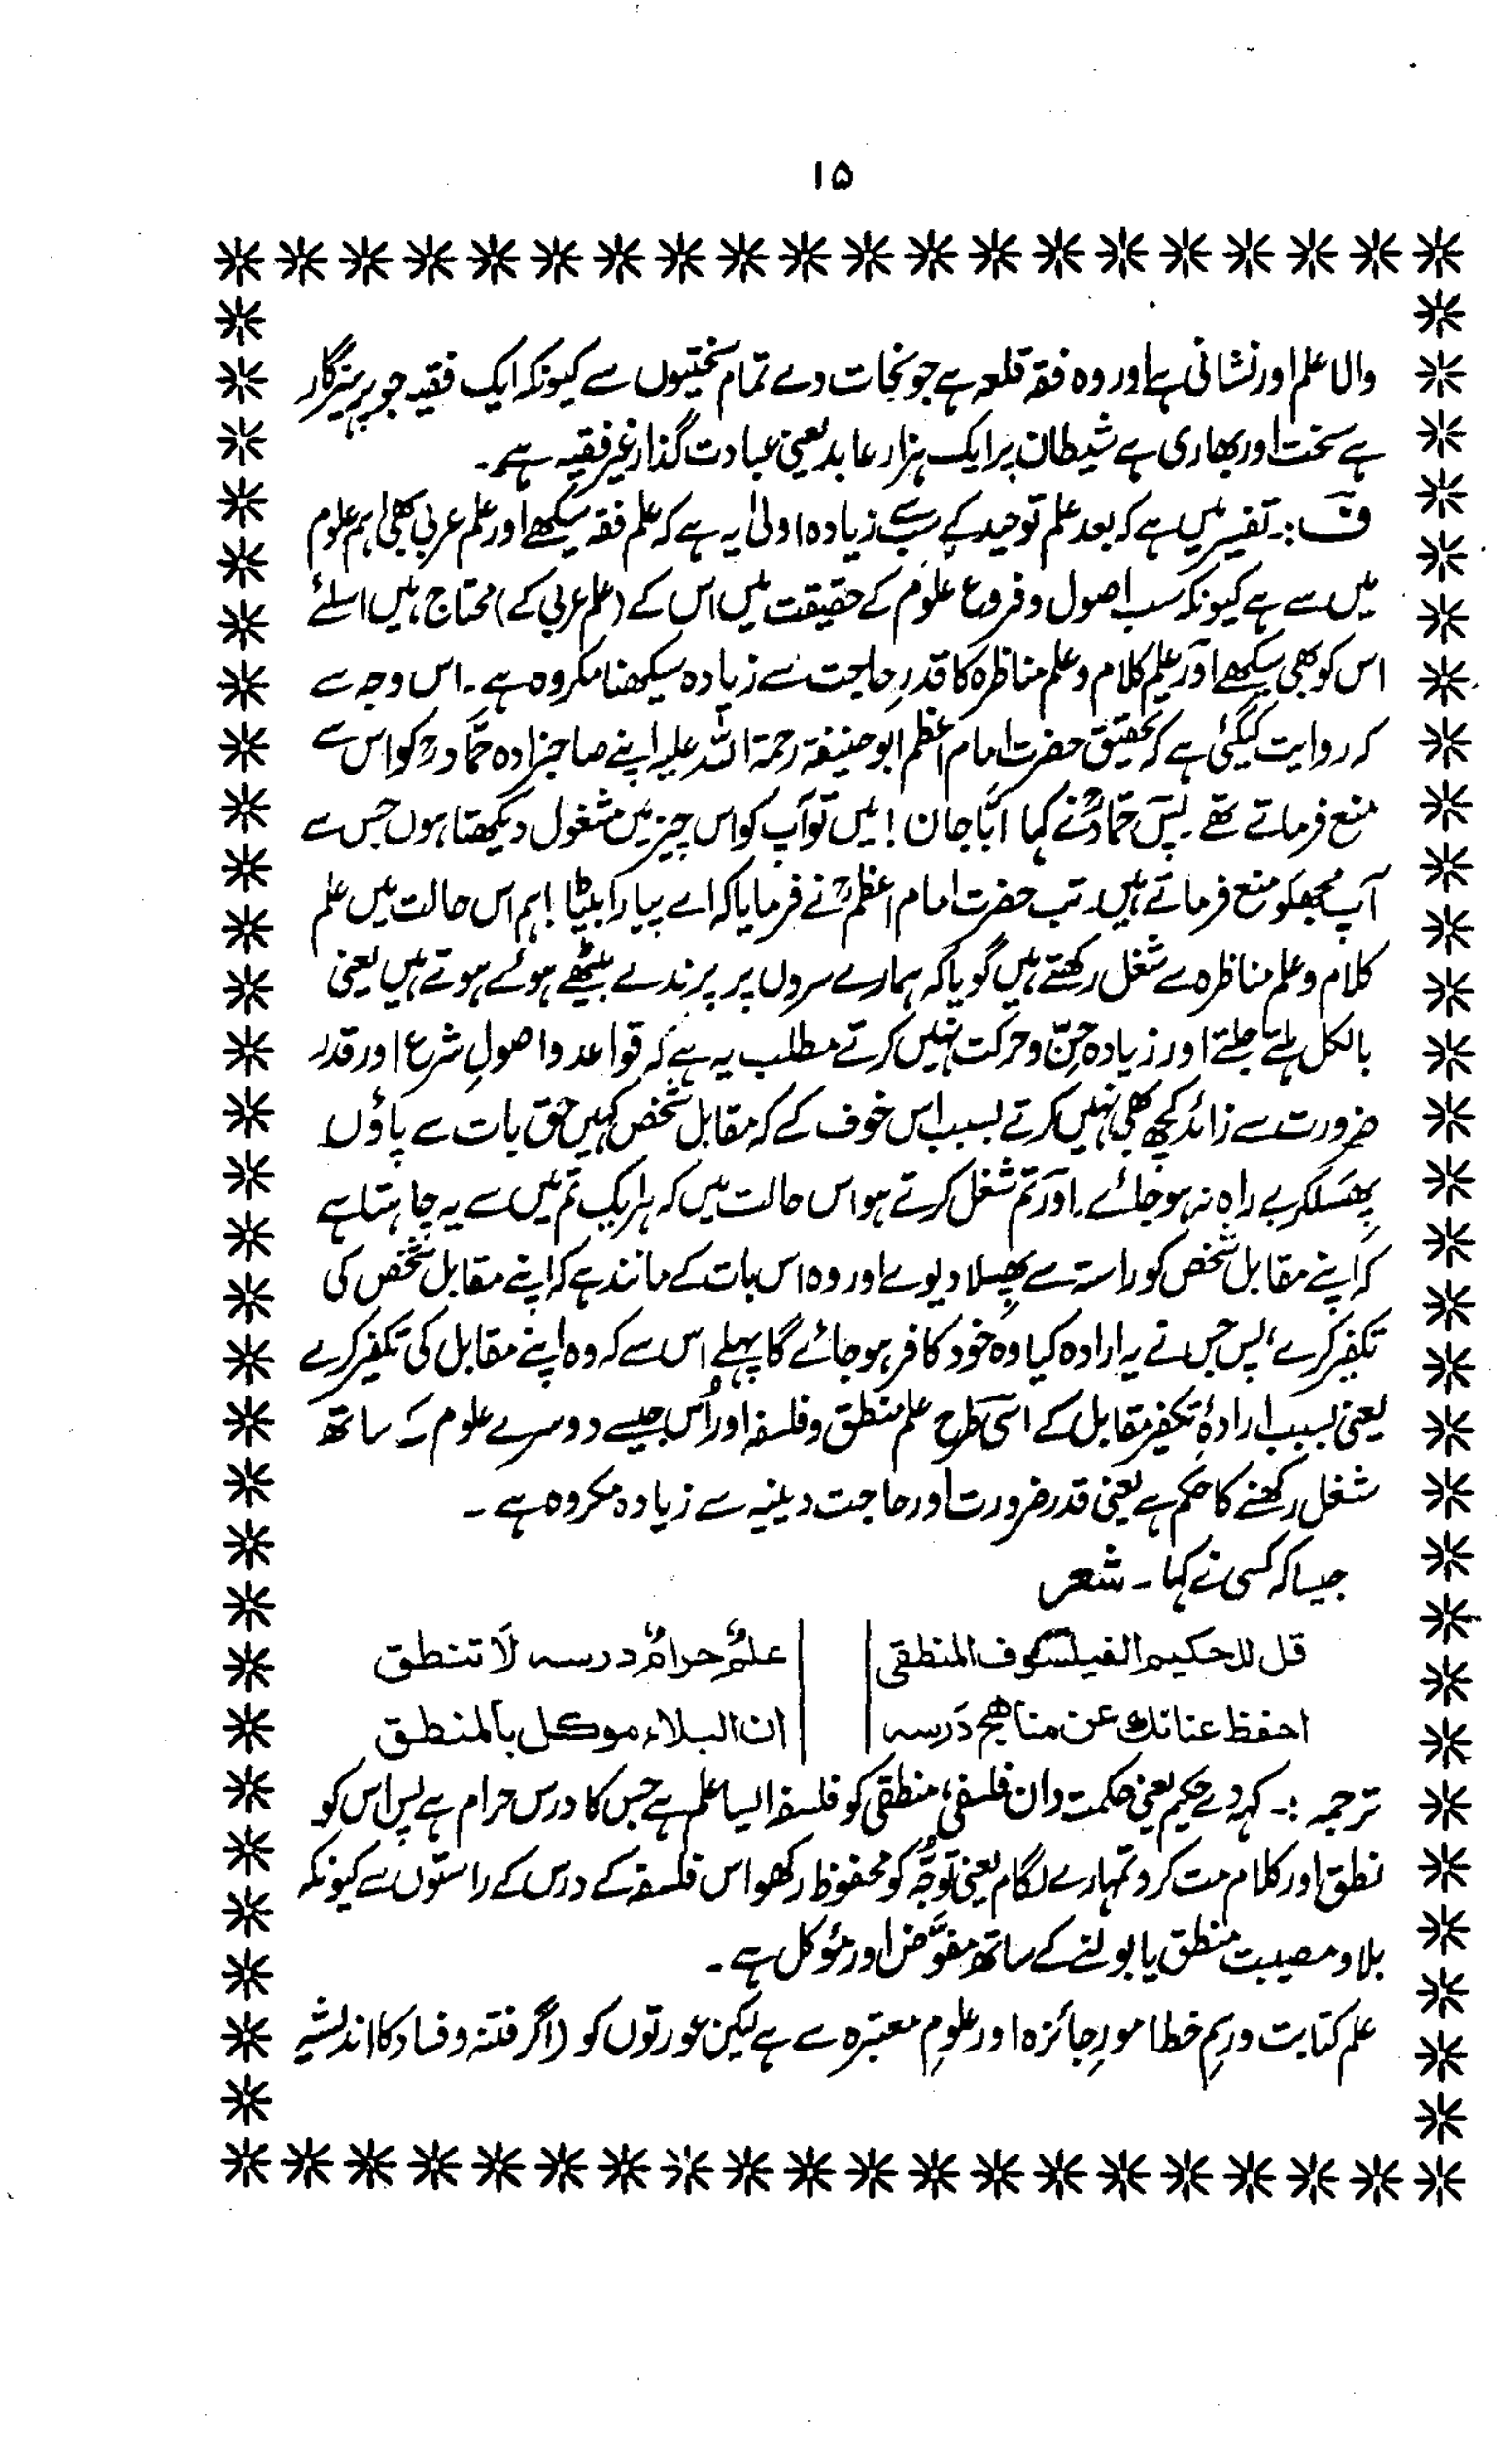 ۱۵
والا علم اور نشانی ہے اور وہ فقہ قلعہ ہے جو نجات دے تمام سختیوں سے کیونکہ ایک فقیہ جو پرہیزگار
ہے سخت اور بھاری ہے شیطان پر ایک ہزار عابد یعنی عبادت گذار غیر فقیہ سے۔
ف:۔ تفسیر میں ہے کہ بعد علم توحید کے سب سے زیادہ اولیٰ یہ ہے کہ علم فقہ سیکھے اور علم عربی بھی اہم علوم
میں سے ہے کیونکہ سب اصول و فروع علوم کے حقیقت میں اس کے (علم عربی کے) محتاج ہیں اسلئے
اس کو بھی سیکھے اور علم کلام و علم مناظرہ کا قدرِ حاجت سے زیادہ سیکھنا مکروہ ہے۔ اس وجہ سے
کہ روایت کیگئی ہے کہ تحقیق حضرت امام اعظم ابو حنیفۃ رحمۃ اللہ علیہ اپنے صاحبزادہ حمّادؒ کو اس سے
منع فرماتے تھے پس حمادؒ نے کہا ابّا جان! میں تو آپ کو اس چیز میں مشغول دیکھتا ہوں جس سے
آپ مجھکو منع فرماتے ہیں۔ تب حضرت امام اعظمؒ نے فرمایا کہ اے پیارا بیٹا! ہم اس حالت میں علم
کلام و علم مناظرہ سے شغل رکھتے ہیں گویا کہ ہمارے سروں پر پرندے بیٹھے ہوئے ہوتے ہیں یعنی
بالکل ہلتے جلتے اور زیادہ حسّ و حرکت نہیں کرتے مطلب یہ ہے کہ قواعد و اصولِ شرع اور قدر
ضرورت سے زائد کچھ بھی نہیں کرتے بسبب اس خوف کے کہ مقابل شخص کہیں حق بات سے پاؤں
پھسلکر بے راہ نہ ہو جائے۔ اور تم شغل کرتے ہو اس حالت میں کہ ہر ایک تم میں سے یہ چاہتا ہے
کہ اپنے مقابل شخص کو راستہ سے پھسلا دیوے اور وہ اس بات کے مانند ہے کہ اپنے مقابل شخص کی
تکفیر کرے، پس جس نے یہ ارادہ کیا وہ خود کافر ہو جائے گا پہلے اس سے کہ وہ اپنے مقابل کی تکفیر کرے
یعنی بسبب ارادۂ تکفیر مقابل کے اسی طرح علم منطق و فلسفہ اور اُس جیسے دوسرے علوم کے ساتھ
شغل رکھنے کا حکم ہے یعنی قدر ضرورت اور حاجت دینیہ سے زیادہ مکروہ ہے۔
جیسا کہ کسی نے کہا۔ شعر
قل للحكيم الفيلسوف المنطقى علمٌ حرامٌ درسه لَا تنطق
احفظ عنانك عن مناهج دَرسه ان البلاء موكل بالمنطق
ترجمہ:۔ کہدے حکیم یعنی حکمت دان فلسفی، منطقی کو فلسفہ ایسا علم ہے جس کا درس حرام ہے پس اس کو
نطق اور کلام مت کرو تمہارے لگام یعنی توجُّہ کو محفوظ رکھو اس فلسفہ کے درس کے راستوں سے کیونکہ
بلا و مصیبت منطق یا بولنے کے ساتھ مفوَّض اور مؤکل ہے۔
علم کتابت و رسم خط امورِ جائزہ اور علومِ معتبرہ سے ہے لیکن عورتوں کو (اگر فتنہ و فساد کا اندیشہ